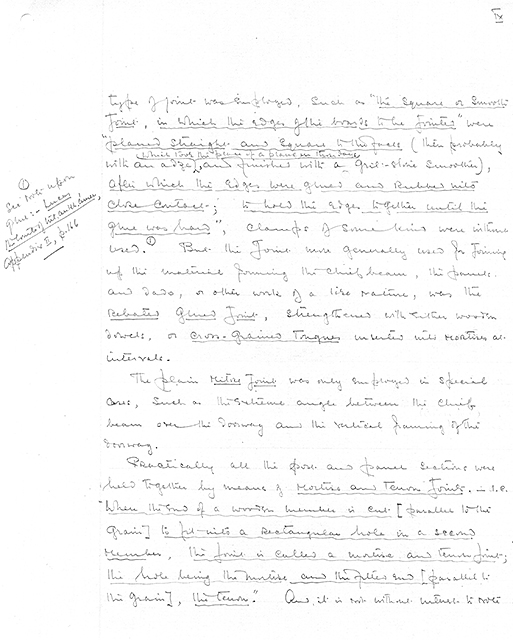 IX
type of joint was employed, such as "the Square or Smooth
Joint, in which the edges of the boards to be jointed" were
"planed straight and square to the faces (then probably
which took the place of a plane in those days
with an adze, and finished with a grit-stone smoother),
after which the edges were glued and rubbed into
close contact; to hold the edges together until the
glue was hard", clamps of some kind were
used.① But the joint more generally used for joining
up the material forming the chief beam, the panels
and dado, or other work of a like nature, was the
Rebated Glued Joint, strengthened with either wooden
dowels, or cross-grained tongues inserted into mortises at
intervals.
The plain Mitre Joint was only employed in special
cases, such as the extreme angle between the chief
beam over the doorway and the vertical framing of the
doorway.
Practically all the post and panel sections were
held together by means of Mortise and Tenon Joints. — i.e.
"When the end of a wooden member is cut [parallel to the
grain] to fit into a rectangular hole in a second
member, the joint is called a mortise and tenon joint;
the hole being the mortise, and the fitted end [parallel to
the grain], the tenon." And it is not without interest to note
①
See note upon
glue:- Lucas
Appendix II, p.166